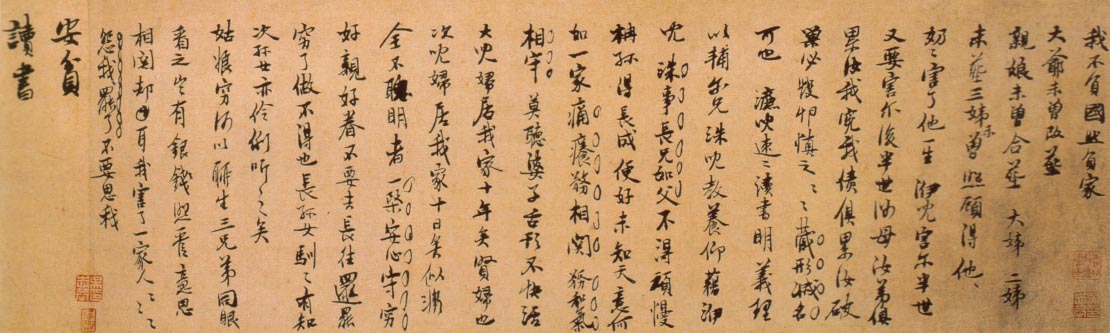 我不負國然負家
大爺未曾改葬
親娘未曾合葬 大姊二姊
未葬三姊未曾照顧得他
奶奶害了他一生 害尔半世
又要害尔後半世 母汝弟俱
累汝我冤我債俱累汝破
巢必毀卵慎之慎之藏形滅名
可也 速速讀書明義理
以輔尔兄洙 教養仰藉
洙事長兄如父不得頑慢
稱孫得長成便好未知天意何
如一家痛癢務相関 務和氣
相守 莫聽婆子古形不快活
大 婦居我家十年矣賢婦也
次 婦居我家十日矣似
全不聰明者一槩安心守窮
好親好眷不要去長往罷罷
窮了做不得也長孫女馴馴有知
次孫女亦伶俐聽之聽之矣
姑娘窮何以聊生三兄弟同眼
看之豈有銀錢照管意思
相関却 耳我害了一家人
怨我罷了不要思我
安貧
讀書